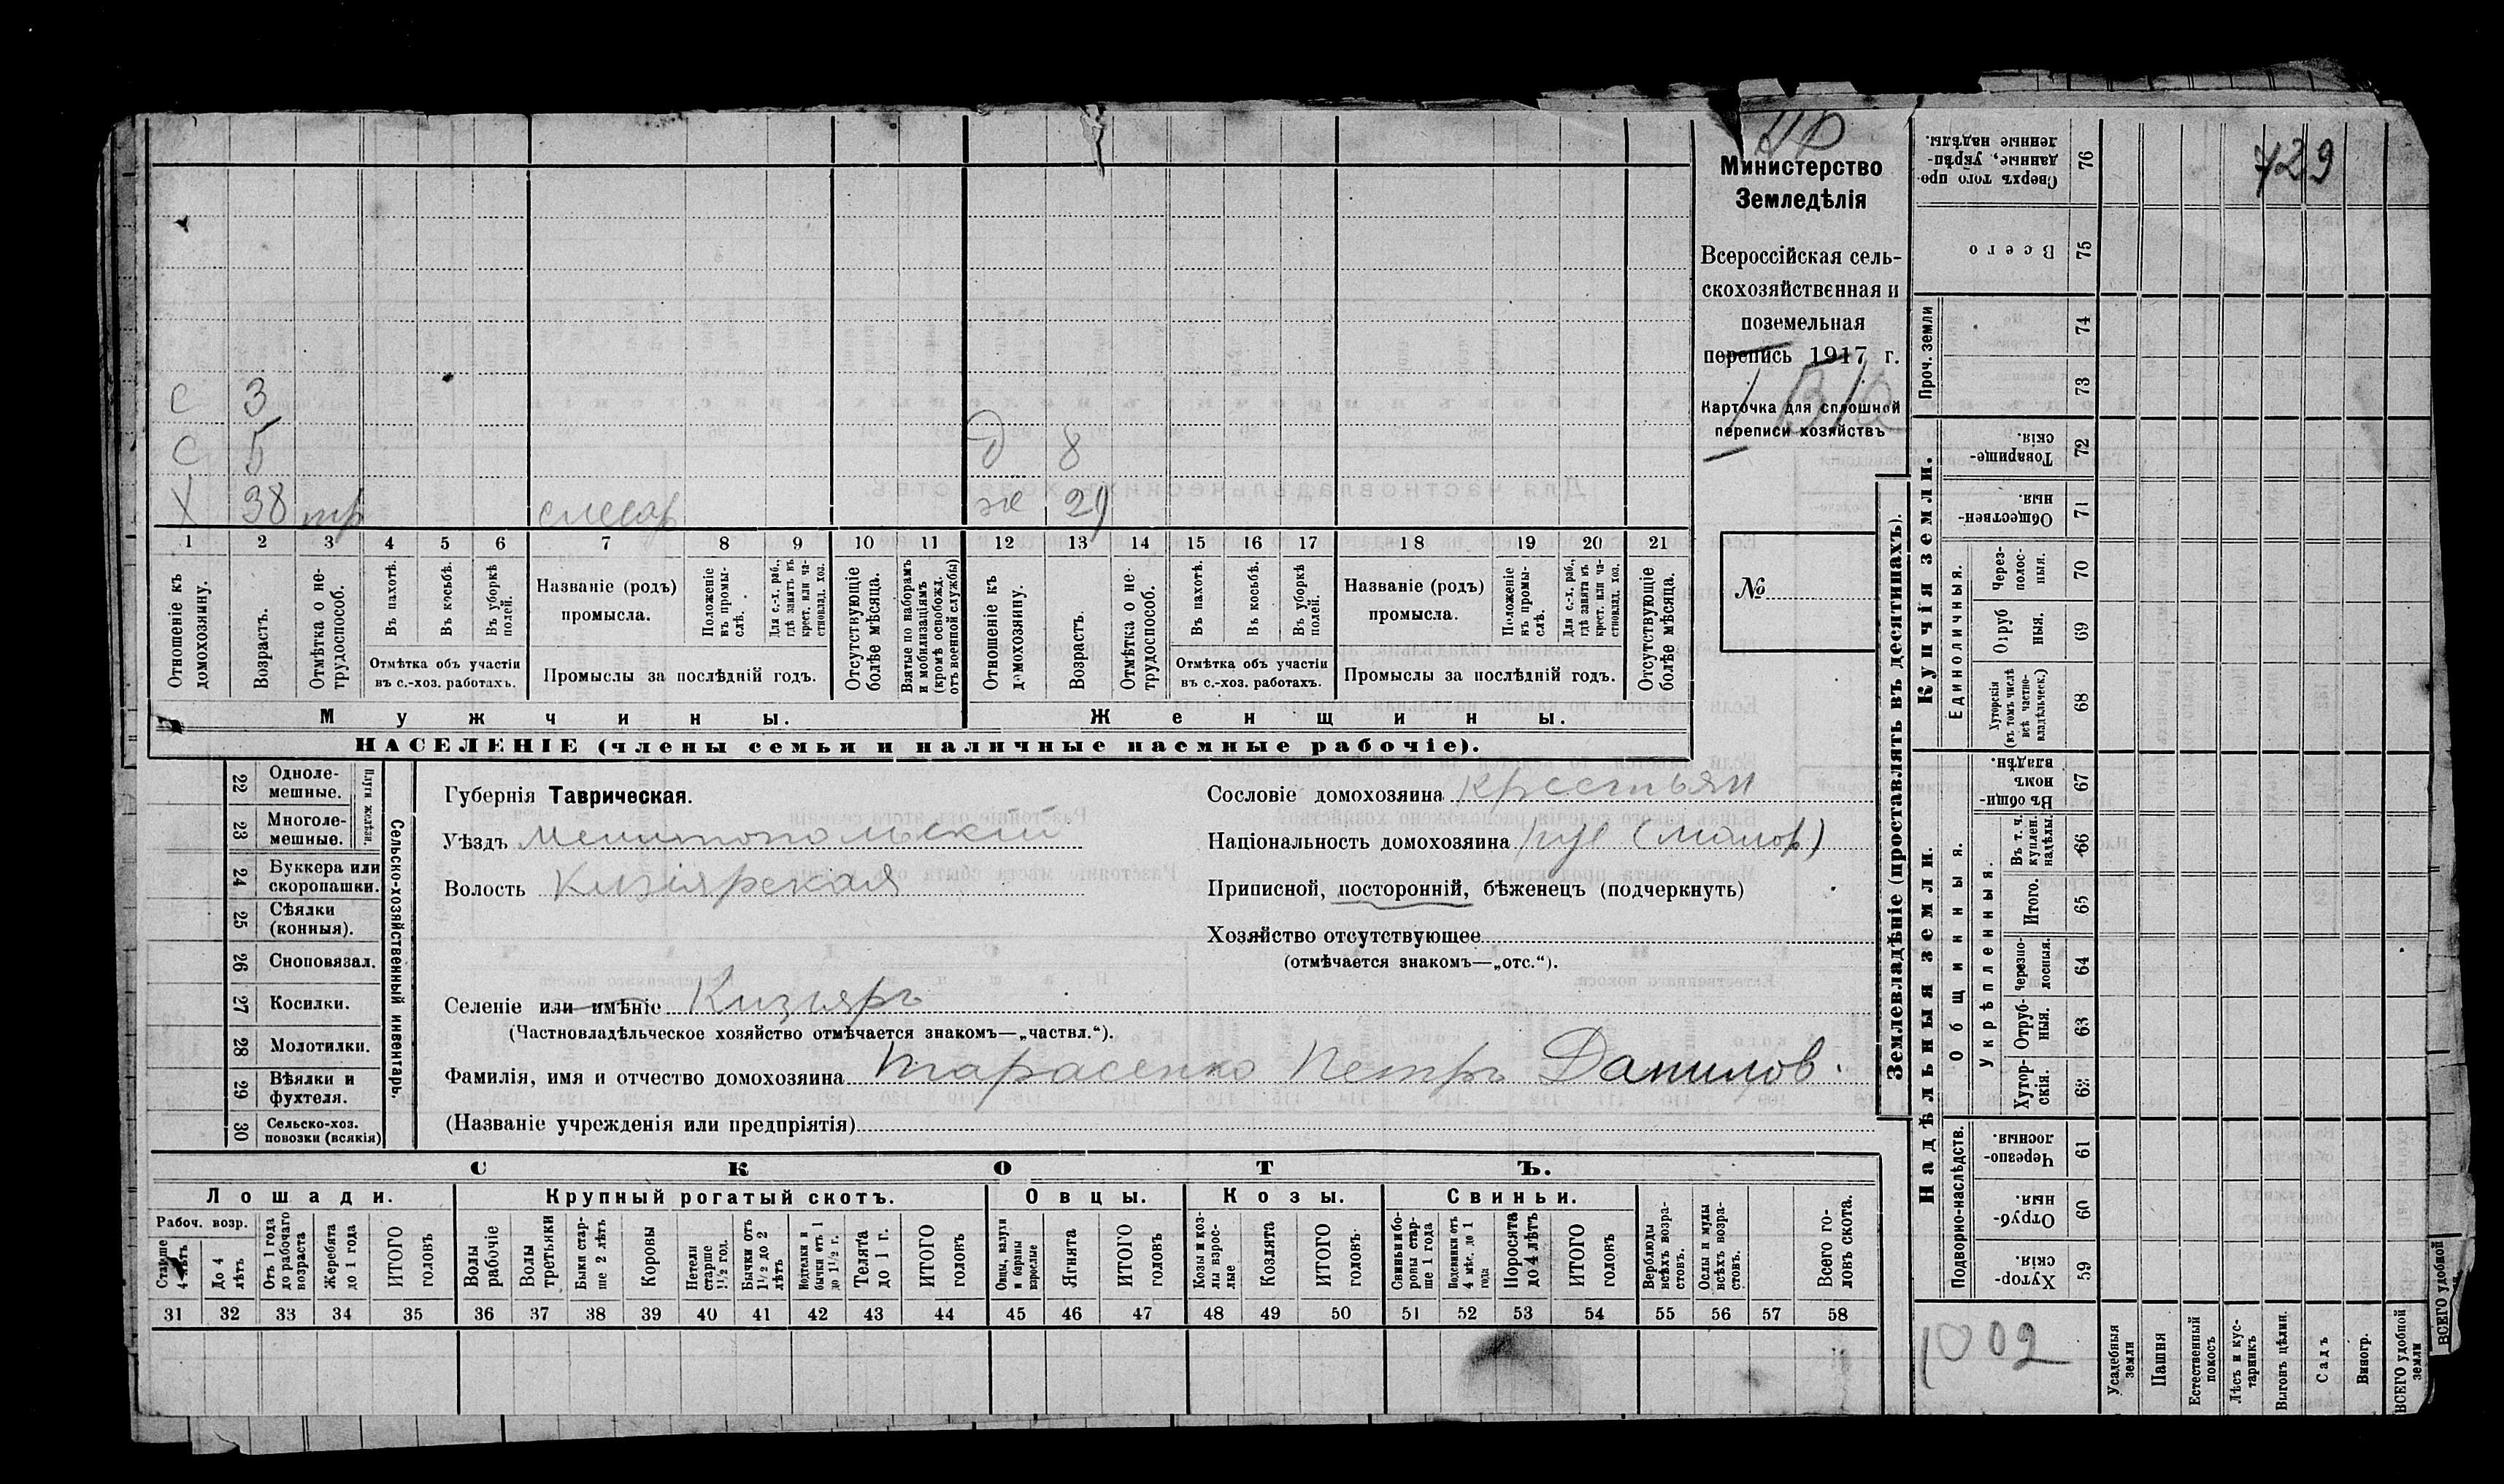 729
Министерство
Земледѣлія
Всероссійская сель-
скохозяйственная и
поземельная
перепись 1917 г.
Карточка для сплошной
переписи хозяйствъ
№
с 3
с 5 д 8
х 38 тр слесар ж 29
1 2 3 4 5 6 7 8 9 10 11 12 13 14 15 16 17 18 19 20 21
Отношеніе къ домохозяину.
Возрастъ.
Отмѣтка о не-трудоспособ.
Въ пахотѣ.
Въ косьбѣ.
Въ уборкѣ полей.
Отмѣтка объ участіи
въ с.-хоз. работахъ.
Названіе (родъ)
промысла.
Положеніе въ промы-слѣ.
Для с.-х. раб., гдѣ занятъ въ крест. или ча-стновлад. хоз.
Промыслы за послѣдній годъ.
Отсутствующіе болѣе мѣсяца.
Взятые по наборамъ и мобилизаціямъ (кромѣ освобожд. отъ военной службы)
Отношеніе къ домохозяину.
Возрастъ.
Отмѣтка о не-трудоспособ.
Въ пахотѣ.
Въ косьбѣ.
Въ уборкѣ полей.
Отмѣтка объ участіи
въ с.-хоз. работахъ.
Названіе (родъ)
промысла.
Положеніе въ промы-слѣ.
Для с.-х. раб., гдѣ занятъ въ крест. или ча-стновлад. хоз.
Промыслы за послѣдній годъ.
Отсутствующіе болѣе мѣсяца.
Мужчины. Женщины.
НАСЕЛЕНІЕ (члены семьи и наличные наемные рабочіе).
Сельско-хозяйственный инвентарь.
Плуги желѣзн.
22 Одноле-мешные.
23 Многоле-мешные.
24 Буккера или скоропашки.
25 Сѣялки (конныя).
26 Сноповязал.
27 Косилки.
28 Молотилки.
29 Вѣялки и фухтеля.
30 Сельско-хоз. повозки (всякія)
Губернія Таврическая.
Уѣздъ Мелитопольскій
Волость Кизіярская
Сословіе домохозяина крестьян
Національность домохозяина рус (малор)
Приписной, посторонній, бѣженецъ (подчеркнуть)
Хозяйство отсутствующее
(отмѣчается знакомъ—„отс.“).
Селеніе или имѣніе Кизіяръ
(Частновладѣльческое хозяйство отмѣчается знакомъ—„частвл.“).
Фамилія, имя и отчество домохозяина Тарасенко Петръ Данилов.
(Названіе учрежденія или предпріятія)
СКОТЪ.
Лошади. Крупный рогатый скотъ. Овцы. Козы. Свиньи.
Рабоч. возр.
Старше 4 лѣтъ
До 4 лѣтъ
Отъ 1 года до рабочаго возраста
Жеребята до 1 года
ИТОГО головъ
Волы рабочіе
Волы третьяки
Быки стар-ше 2 лѣтъ
Коровы
Нетели старше 1½ год.
Бычки отъ 1½ до 2 лѣтъ
Подтелки и бычки отъ 1 до 1½ г.
Телята до 1 г.
ИТОГО головъ
Овцы, валухи и бараны взрослые
Ягнята
ИТОГО головъ
Козы и коз-лы взрос-лые
Козлята
ИТОГО головъ
Свиньи и бо-ровы стар-ше 1 года
Подсвинки отъ 4 мѣс. до 1 года
Поросята до 4 лѣтъ
ИТОГО головъ
Верблюды всѣхъ возра-стовъ.
Ослы и мулы всѣхъ возра-стовъ.
Всего го-ловъ скота.
31 32 33 34 35 36 37 38 39 40 41 42 43 44 45 46 47 48 49 50 51 52 53 54 55 56 57 58
Землевладѣніе (проставлять въ десятинахъ).
Сверхъ того про-данные, укрѣп-ленные надѣлы. 76
Всего 75
Проч. земли
74
73
Купчія земли.
Товарище-скія. 72
Обществен-ныя. 71
Единоличныя.
Через-полос-ныя. 70
Отруб ныя. 69
Хуторскія (въ томъ числѣ всѣ частно-владѣльческ.) 68
Надѣльныя земли.
Общинныя.
Въ общи-номъ владѣн. 67
Въ т. ч. куплен. надѣлы. 66
Укрѣпленныя.
Итого. 65
Черезпо-лосныя. 64
Отруб-ныя. 63
Хутор-скія. 62
Подворно-наслѣдств.
Черезпо-лосныя. 61
Отруб-ныя. 60
Хутор-скія. 59
1002
Усадебныя земли
Пашня
Естественный покосъ
Лѣсъ и кус-тарникъ
Выгонъ цѣлин.
Садъ
Виногр.
ВСЕГО удобной земли
ВСЕГО удобной